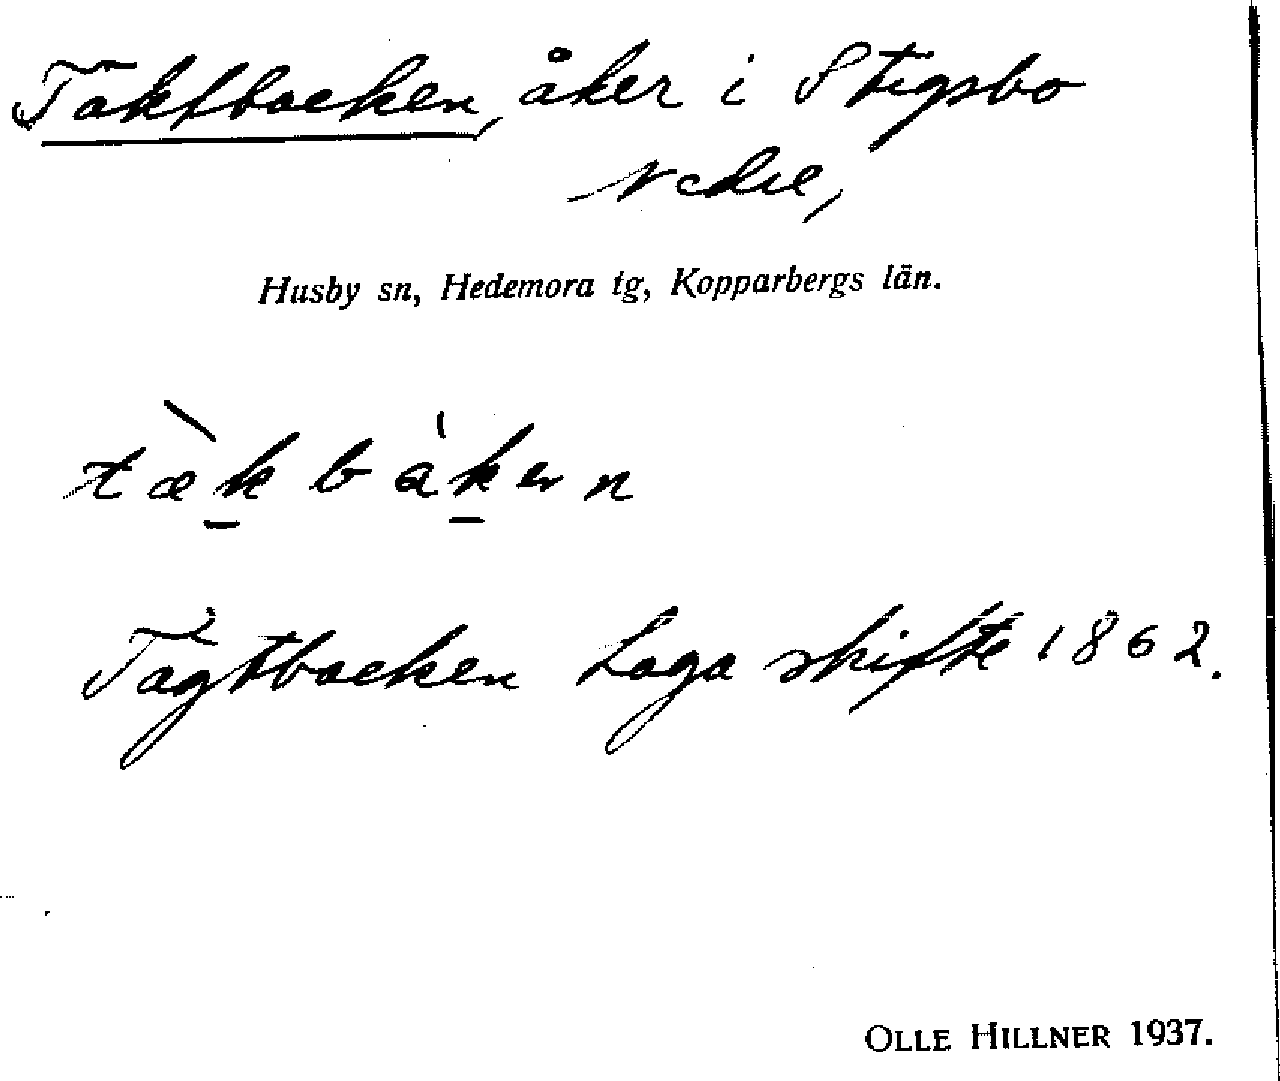 Täktbacken, åker i Stigsbo
Nedre,
Husby sn, Hedemora tg, Kopparbergs län.
tæk bàken
Tägtbacken Laga skifte 1862.
OLLE HILLNER 1937.